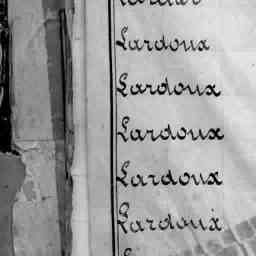 Lardoux
Lardoux
Lardoux
Lardoux
Lardoux